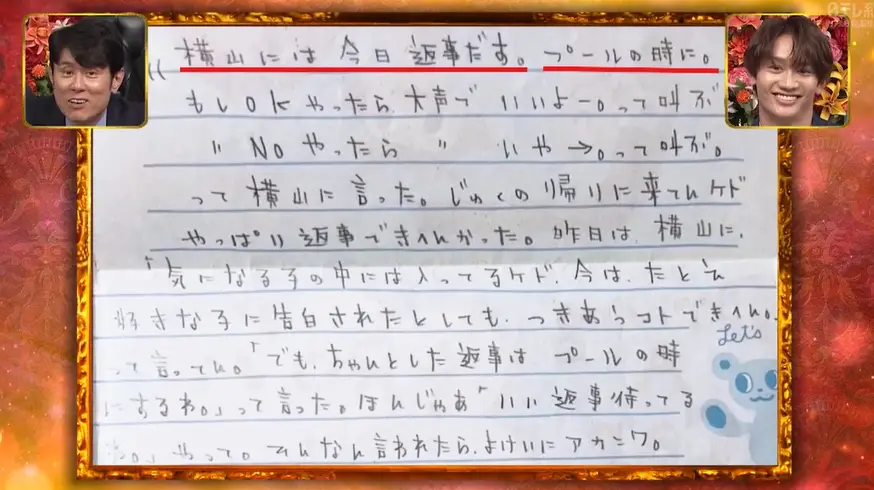 日テレ系
横山には今日返事だす。プールの時に。
もしOKやったら大声で いいよー。って叫ぶ
〃 NOやったら 〃 いやー。って叫ぶ。
って横山に言った。じゅくの帰りに来てんケド
やっぱり返事できへんかった。昨日は、横山に、
「気になる子の中には入ってるケド、今は、たとえ
好きな子に告白されたとしても、つきあうコトできへん。
って言ってん。「でも、ちゃんとした返事はプールの時
にするわ。」って言った。ほんじゃあ「いい返事待ってる
わ。」やって。そんなん言われたら、よけいにアカンワ。
Let's